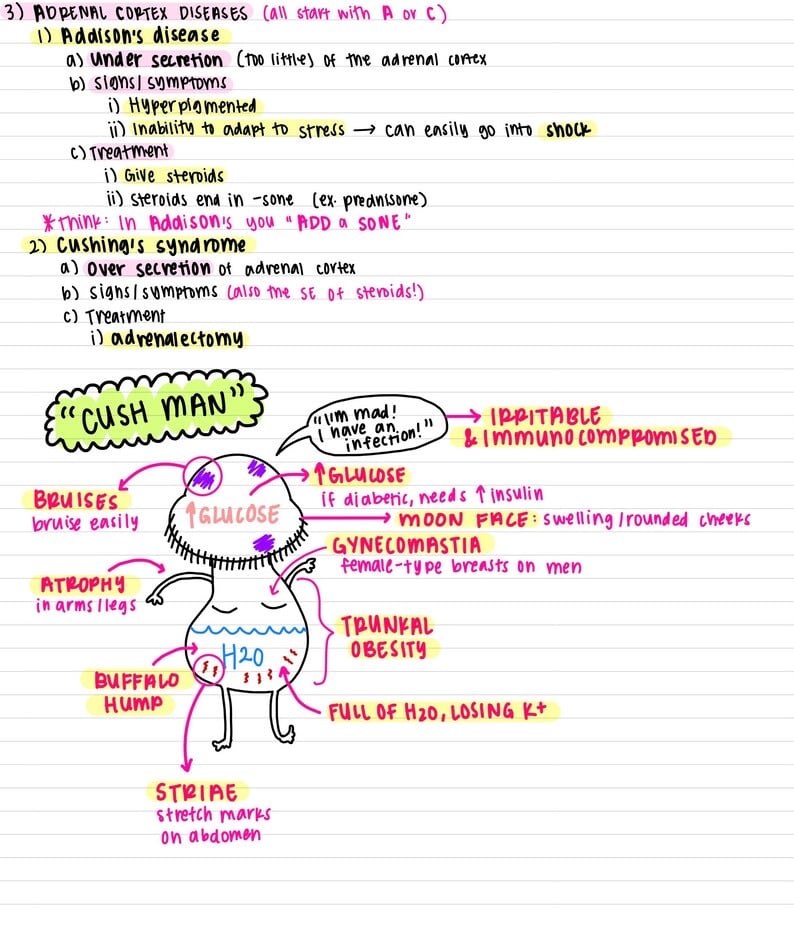 3) ADRENAL CORTEX DISEASES (all start with A or C)
1) Addison's disease
a) under secretion (too little) of the adrenal cortex
b) signs/symptoms
i) Hyperpigmented
ii) Inability to adapt to stress → can easily go into shock
c) Treatment
i) Give steroids
ii) steroids end in -sone (ex. prednisone)
*Think: In Addison's you "ADD a SONE"
2) Cushing's syndrome
a) over secretion of adrenal cortex
b) signs/symptoms (also the SE of steroids!)
c) Treatment
i) adrenalectomy
"CUSH MAN"
"I'm mad!
I have an
infection!"
IRRITABLE
& IMMUNOCOMPROMISED
↑GLUCOSE
if diabetic, needs ↑ insulin
BRUISES
bruise easily
↑GLUCOSE
MOON FACE: swelling/rounded cheeks
GYNECOMASTIA
female-type breasts on men
ATROPHY
in arms/legs
TRUNKAL
OBESITY
H2O
BUFFALO
HUMP
FULL OF H2O, LOSING K+
STRIAE
stretch marks
on abdomen